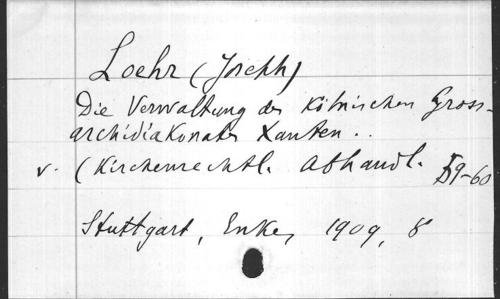 Loehr (Joseph)
Die Verwaltung des Kölnischen Gross-
archidiakonates Xanten..
v. (Kirchenrechtl. Abhandl. 59-60
Stuttgart, Enke, 1909, 8°